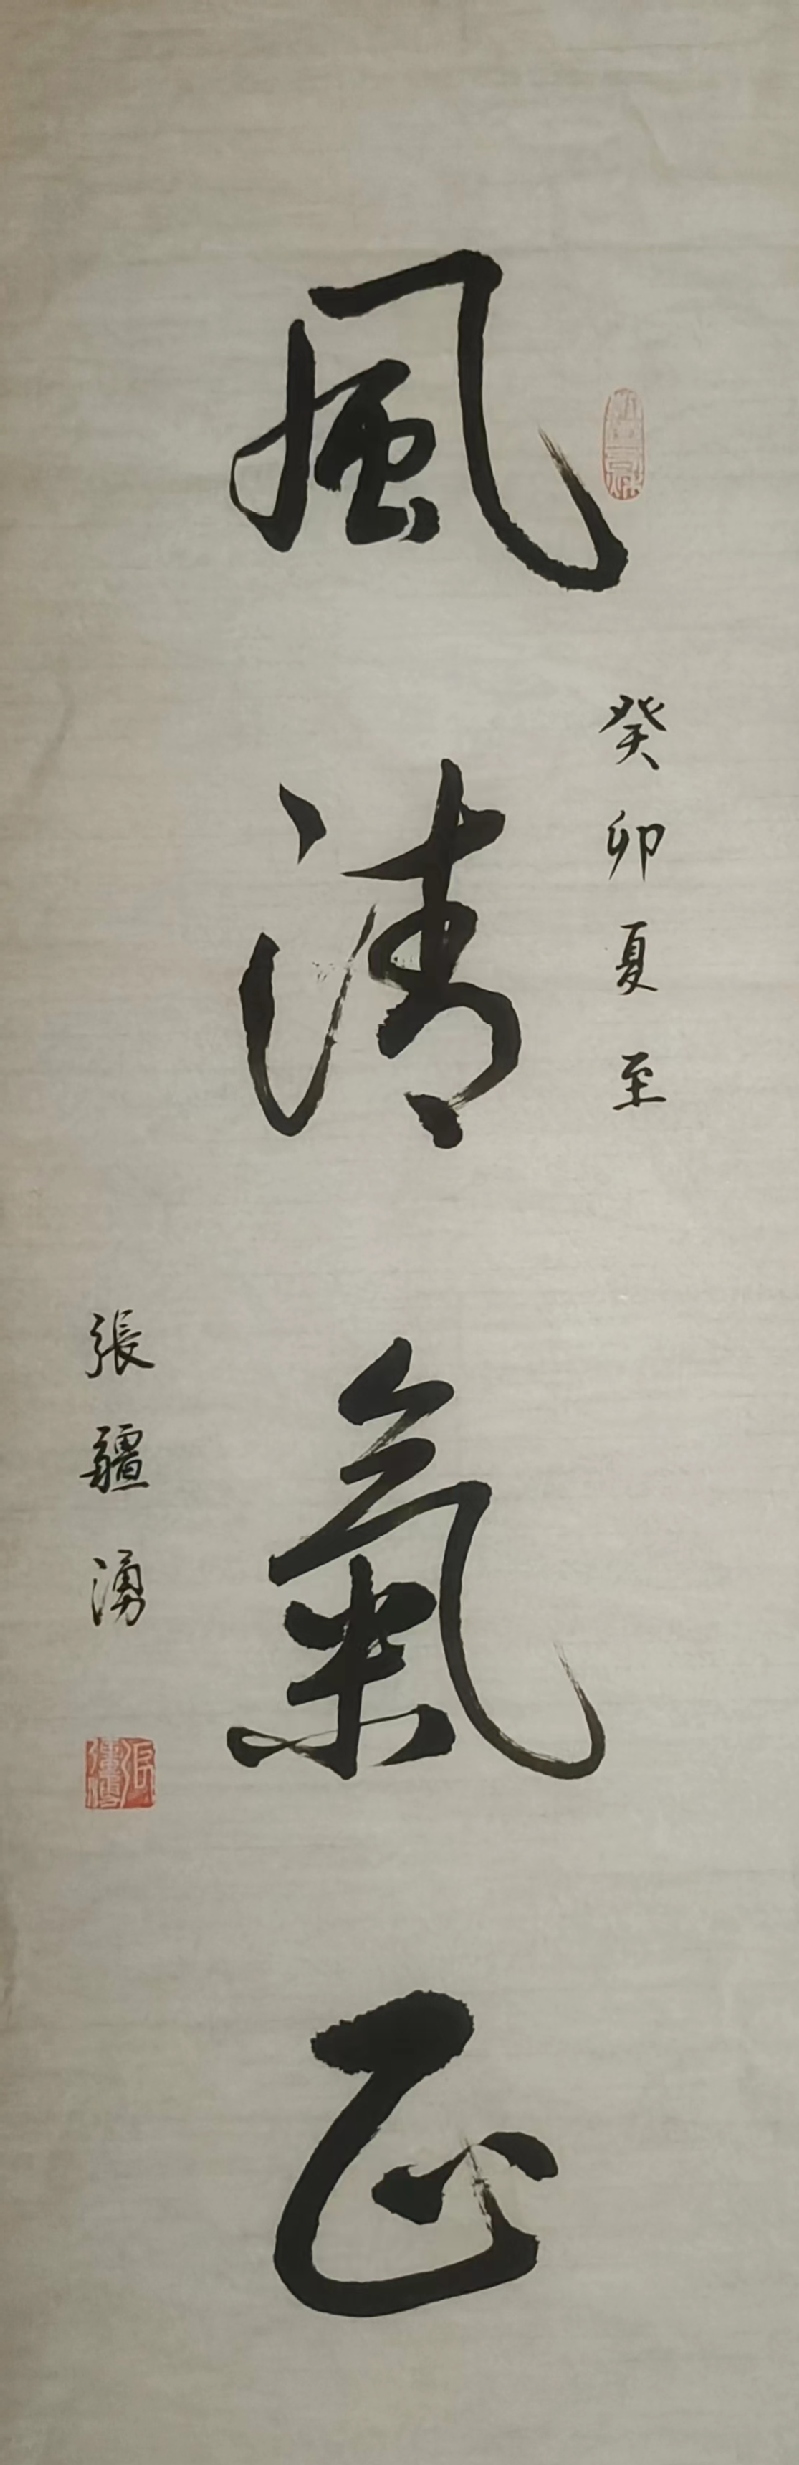 癸卯夏至
風清氣正
張疆湧